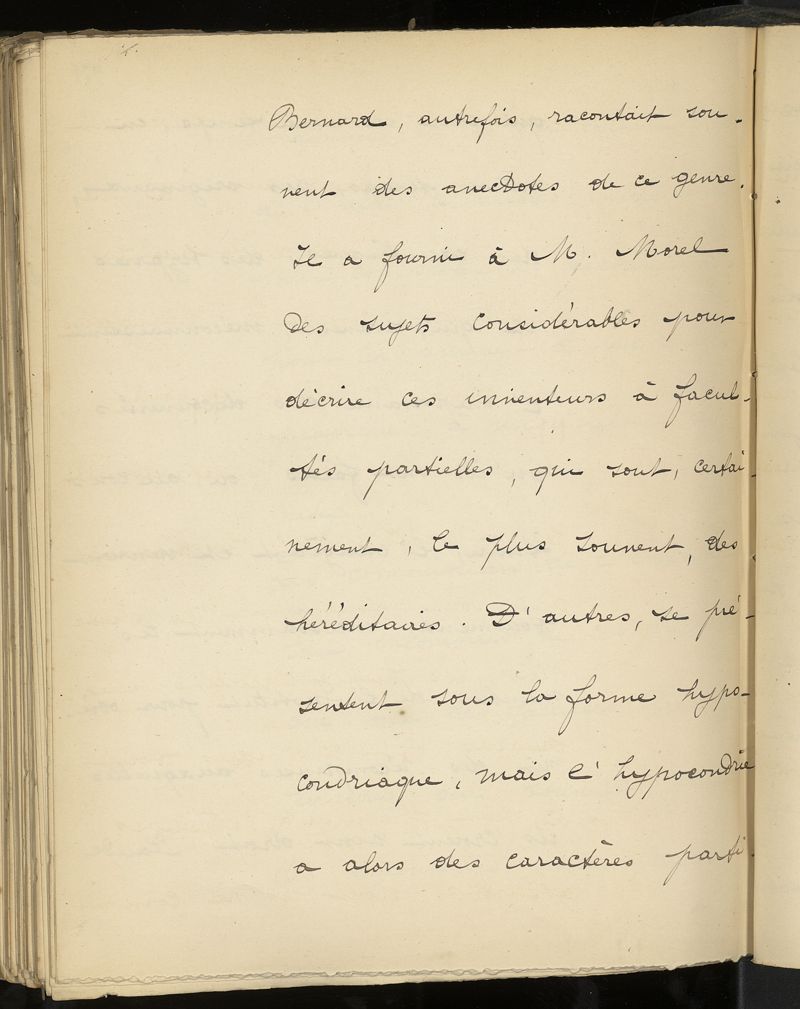 Bernard, autrefois, racontait sou-
vent des anecdotes de ce genre.
Il a fourni à M. Morel
des sujets considérables pour
décrire ces inventeurs à facul-
tés partielles, qui sont, certai-
nement, le plus souvent, des
héréditaires. D'autres, se pré-
sentent sous la forme hypo-
condriaque, mais l'hypocondrie
a alors des caractères parti